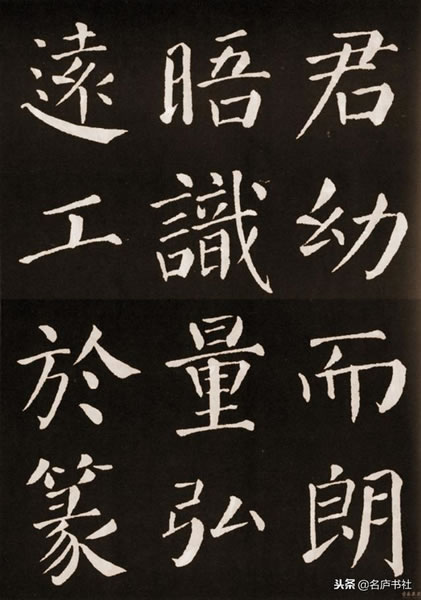 君幼而朗
晤識量弘
遠工於篆
头条@名庐书社